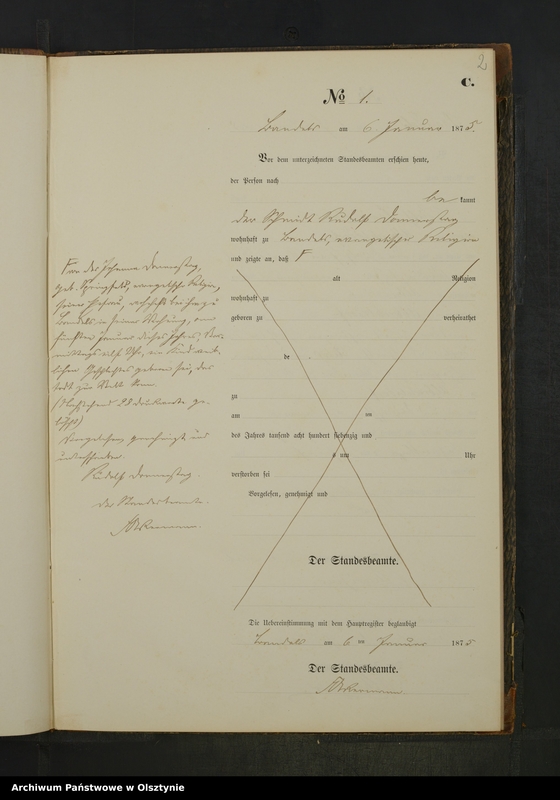 2
C.
No 1.
Bandels am 6 Januar 1875.
Vor dem unterzeichneten Standesbeamten erschien heute,
der Person nach
be kannt
der Schmidt Rudolf Donnerstag
wohnhaft zu Bandels, evangelischer Religion
und zeigte an, daß F
alt Religion
wohnhaft zu
geboren zu verheirathet
de
zu
am ten
des Jahres tausend acht hundert siebenzig und
s um Uhr
verstorben sei
Vorgelesen, genehmigt und
Der Standesbeamte.
Die Uebereinstimmung mit dem Hauptregister beglaubigt
Bandels am 6 ten Januar 1875
Der Standesbeamte.
F von der Johanna Donnerstag,
geb. evangelischer Religion,
seiner Ehefrau, wohnhaft bei ihm zu
Bandels in seiner Wohnung, am
fünften Januar dieses Jahres, Vor-
mittags Uhr, ein Kind weib-
lichen Geschlechts geboren sei, das
todt zur Welt kam.
(Vorstehend 28 Druckworte ge-
löscht)
Vorgelesen genehmigt und
unterschrieben
Rudolf Donnerstag.
Der Standesbeamte.
Archiwum Państwowe w Olsztynie